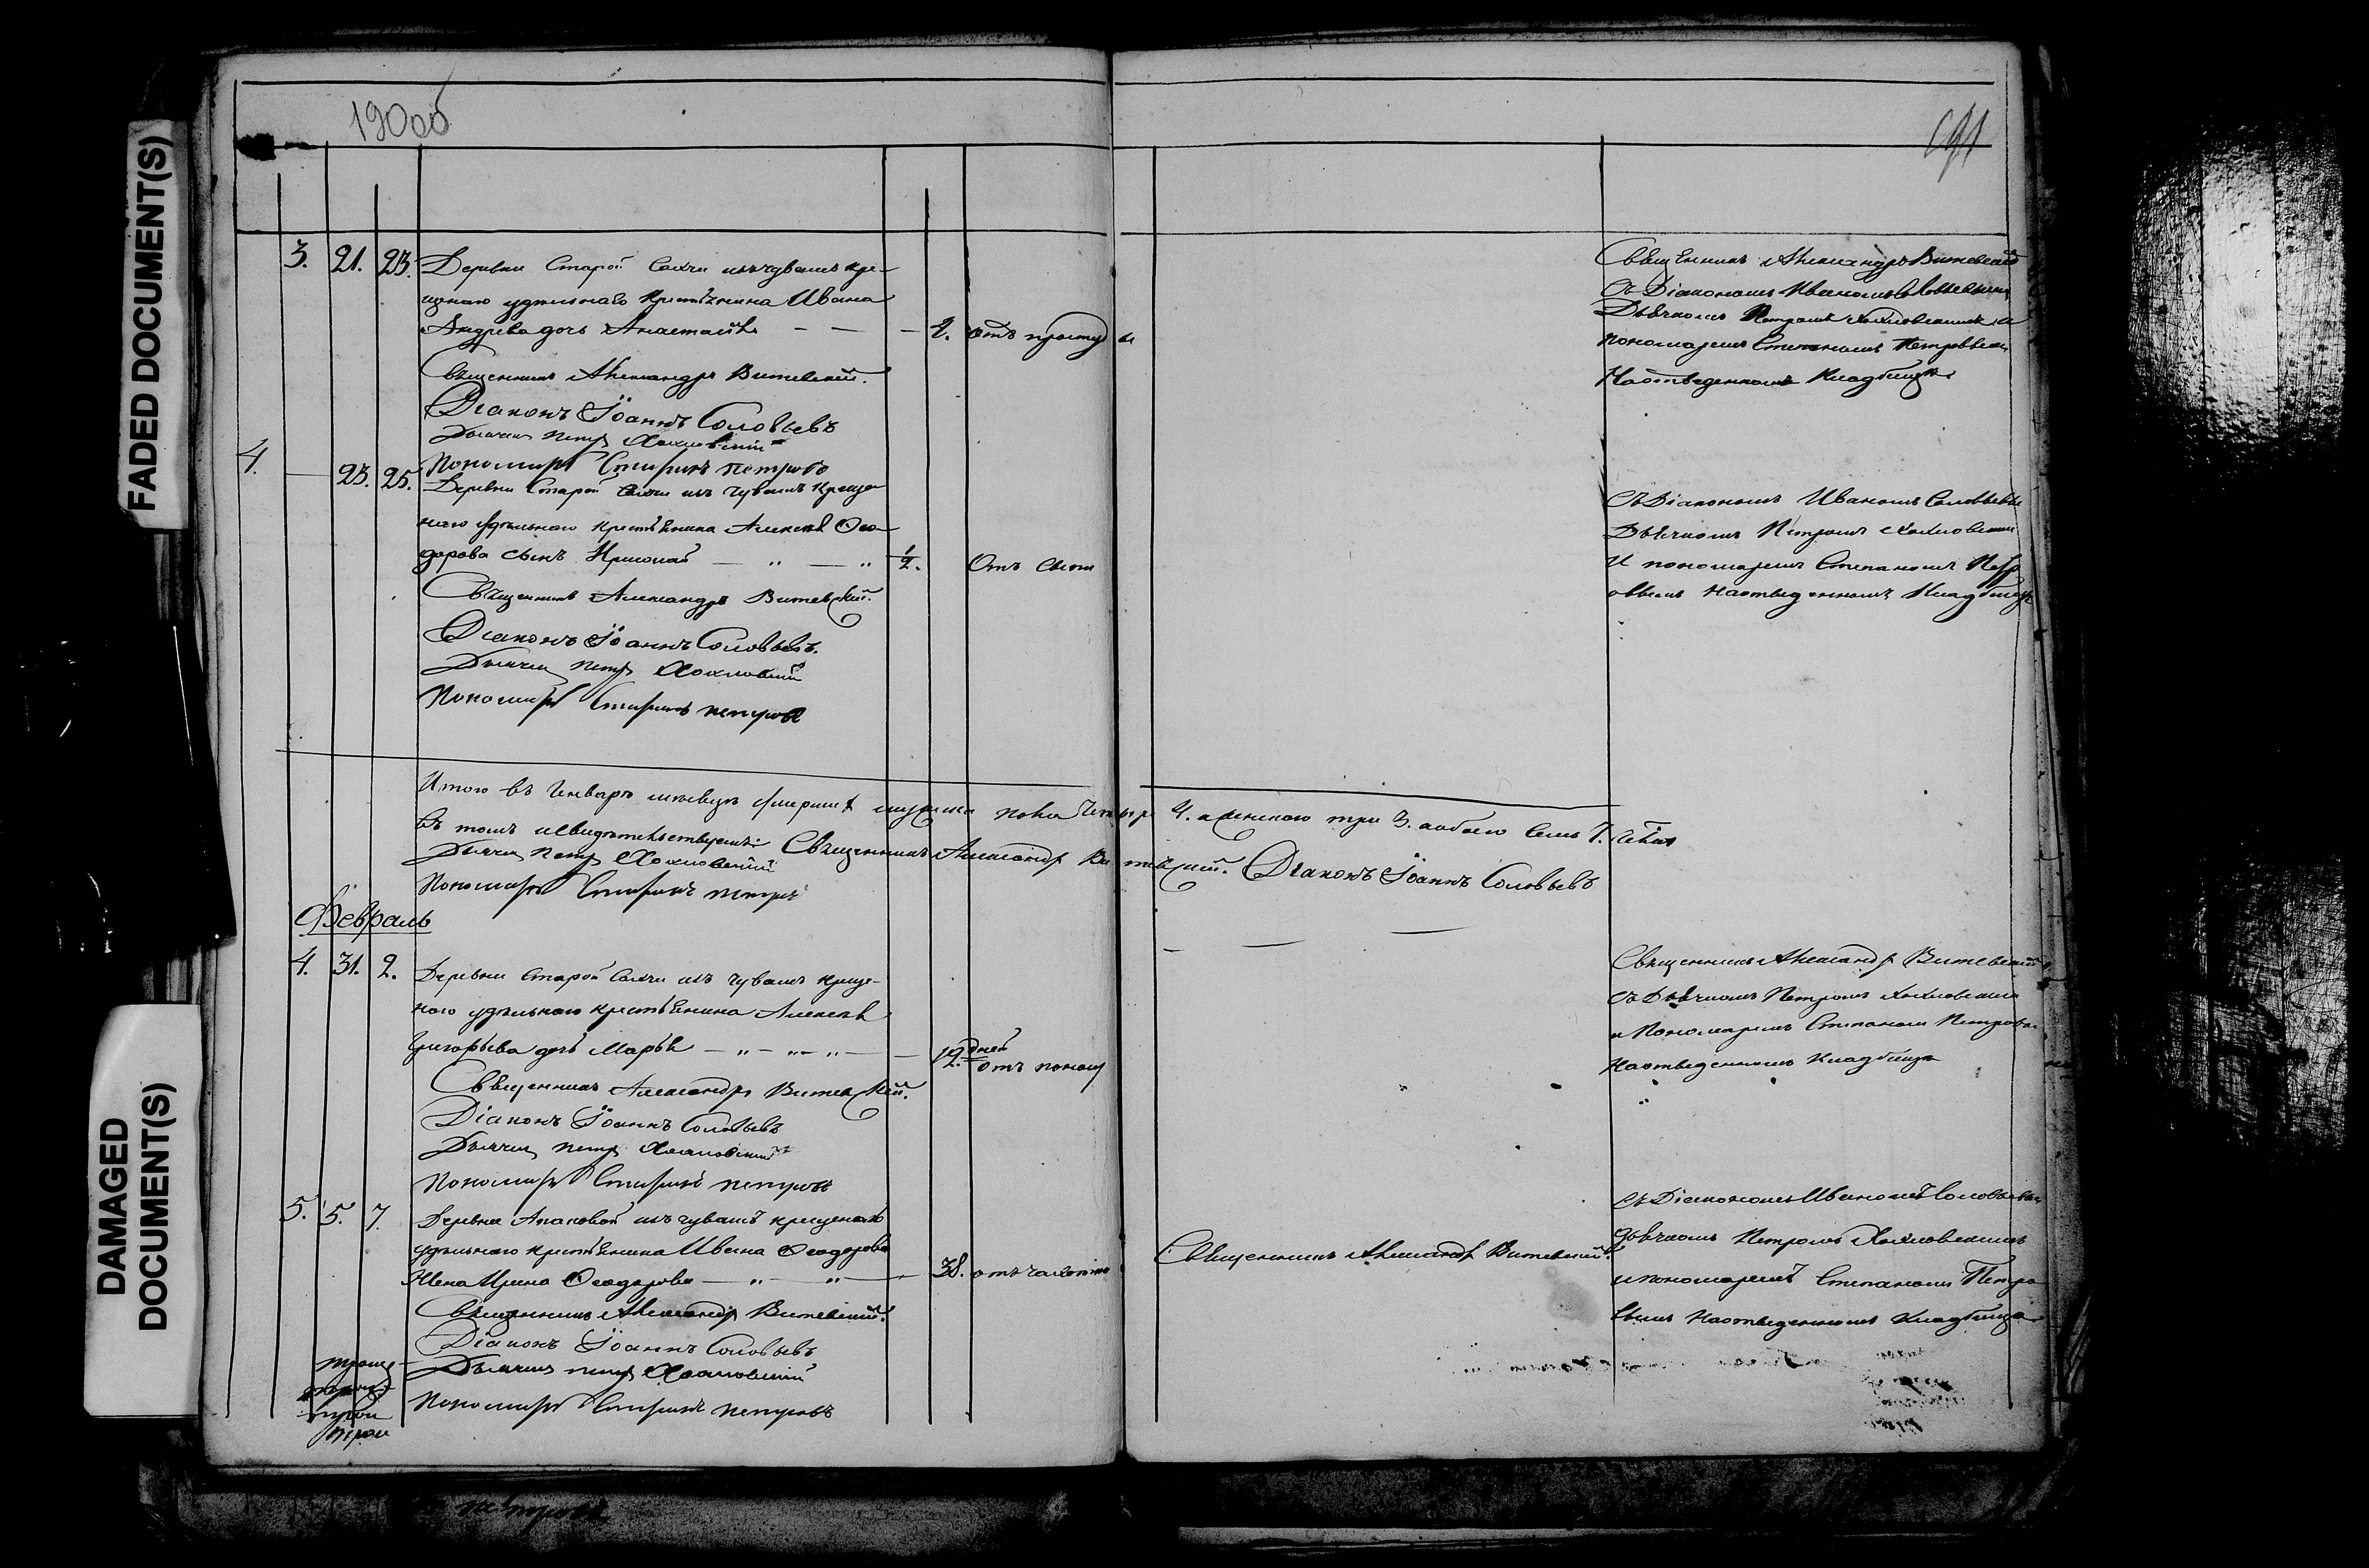 FADED DOCUMENT(S)
DAMAGED
DOCUMENT(S)
190об
191
3. 21. 23. Деревни Старой Сахчи изъ чувашъ кре-
щенаго удѣльнаго крестьянина Ивана
Андреева дочь Анастасія — — — 2. отъ простуды
Священникъ Александръ Витевскій.
Діаконъ Іоаннъ Соловьевъ
Дьячекъ Петръ Хохловскій
Пономарь Стефанъ Петровъ
Священникъ Александръ Витевскій
Съ Діакономъ Иваномъ Соловьевымъ
Дьячкомъ Петромъ Хохловскимъ и
пономаремъ Степаномъ Петровымъ
На отведенномъ Кладбищѣ
4. — 23. 25. Деревни Старой Сахчи изъ чувашъ креще
наго удѣльнаго крестьянина Алексѣя Ѳео
дорова сынъ Николай — „ — „ 1/2. Отъ сыпи
Священникъ Александръ Витевскій.
Діаконъ Іоаннъ Соловьевъ.
Дьячекъ Петръ Хохловскій
Пономарь Стефанъ Петровъ
Съ Діакономъ Иваномъ Соловьевымъ
Дьячкомъ Петромъ Хохловскимъ
и пономаремъ Степаномъ Петр
овымъ на отведенномъ Кладбищѣ
Итого въ Генварѣ мѣсяцѣ умерших мужска пола четыре 4. а женскаго три 3. а обоего семь 7.
въ томъ и свидѣтельствуемъ: Священникъ Александръ Витевскій. Діаконъ Іоаннъ Соловьевъ
Дьячекъ Петръ Хохловскій
Пономарь Стефанъ Петровъ
Февраль
4. 31. 2. Деревни Старой Сахчи изъ чувашъ креще-
наго удѣльнаго крестьянина Алексѣя
Григорьева дочь Марья — „ — „ — „ — — 12. дней отъ поносу
Священникъ Александръ Витевскій.
Діаконъ Іоаннъ Соловьевъ
Дьячекъ Петръ Хохловскій
Пономарь Стефанъ Петровъ
Священникъ Александръ Витевскій
съ Дьячкомъ Петромъ Хохловскимъ
и Пономаремъ Степаномъ Петровымъ
на отведенномъ Кладбищѣ
5. 5. 7. Деревни Апаковой изъ чувашъ крещенаго
удѣльнаго крестьянина Ивана Ѳеодорова
Жена Ирина Ѳеодорова — „ — „ — 38. отъ чахотки
Священникъ Александръ Витевскій.
Діаконъ Іоаннъ Соловьевъ
Дьячекъ Петръ Хохловскій
Пономарь Стефанъ Петровъ
Священникъ Александръ Витевскій.
съ Діакономъ Иваномъ Соловьевымъ
дьячкомъ Петромъ Хохловскимъ
и пономаремъ Степаномъ Петро
вымъ на отведенномъ Кладбищѣ